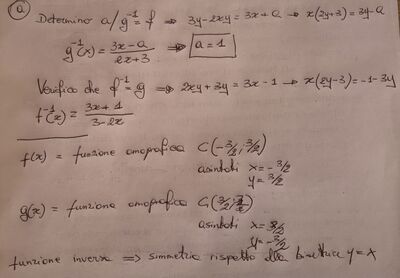 ⓐ Determino a/ g⁻¹ = f ⇒ 3y-2xy = 3x+a → x(2y+3) = 3y-a
g⁻¹(x) = (3x-a)/(2x+3) → a=1
Verifico che f⁻¹ = g ⇒ 2xy+3y = 3x-1 → x(2y-3) = -1-3y
f⁻¹(x) = (3x+1)/(3-2x)
f(x) = funzione omografica C(-3/2, 3/2)
asintoti x=-3/2
y=3/2
g(x) = funzione omografica C(3/2,
asintoti x=3/2
y=-3/2
funzione inversa ⇒ simmetria rispetto alla bisettrice y=x